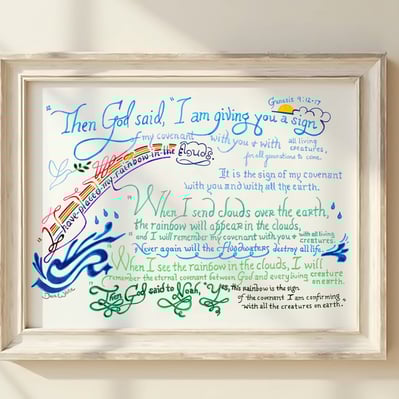 Genesis 9:12-17
"Then God said, "I am giving you a sign
my covenant with you + with all living creatures,
for all generations to come.
"I have placed my rainbow in the clouds.
It is the sign of my covenant
with you and with all the earth.
"When I send clouds over the earth,
the rainbow will appear in the clouds,
and I will remember my covenant with you + with all living creatures.
Never again will the floodwaters destroy all life.
When I see the rainbow in the clouds, I will
remember the eternal covenant between God and every living creature on earth.
"Then God said to Noah, "Yes, this rainbow is the sign
of the covenant I am confirming
with all the creatures on earth."